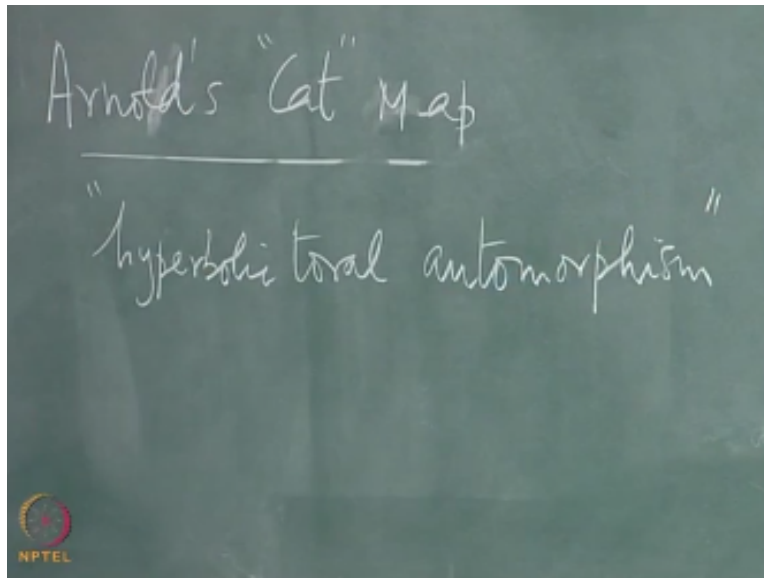 Arnold's "Cat" Map
"hyperbolic toral automorphism"
NPTEL